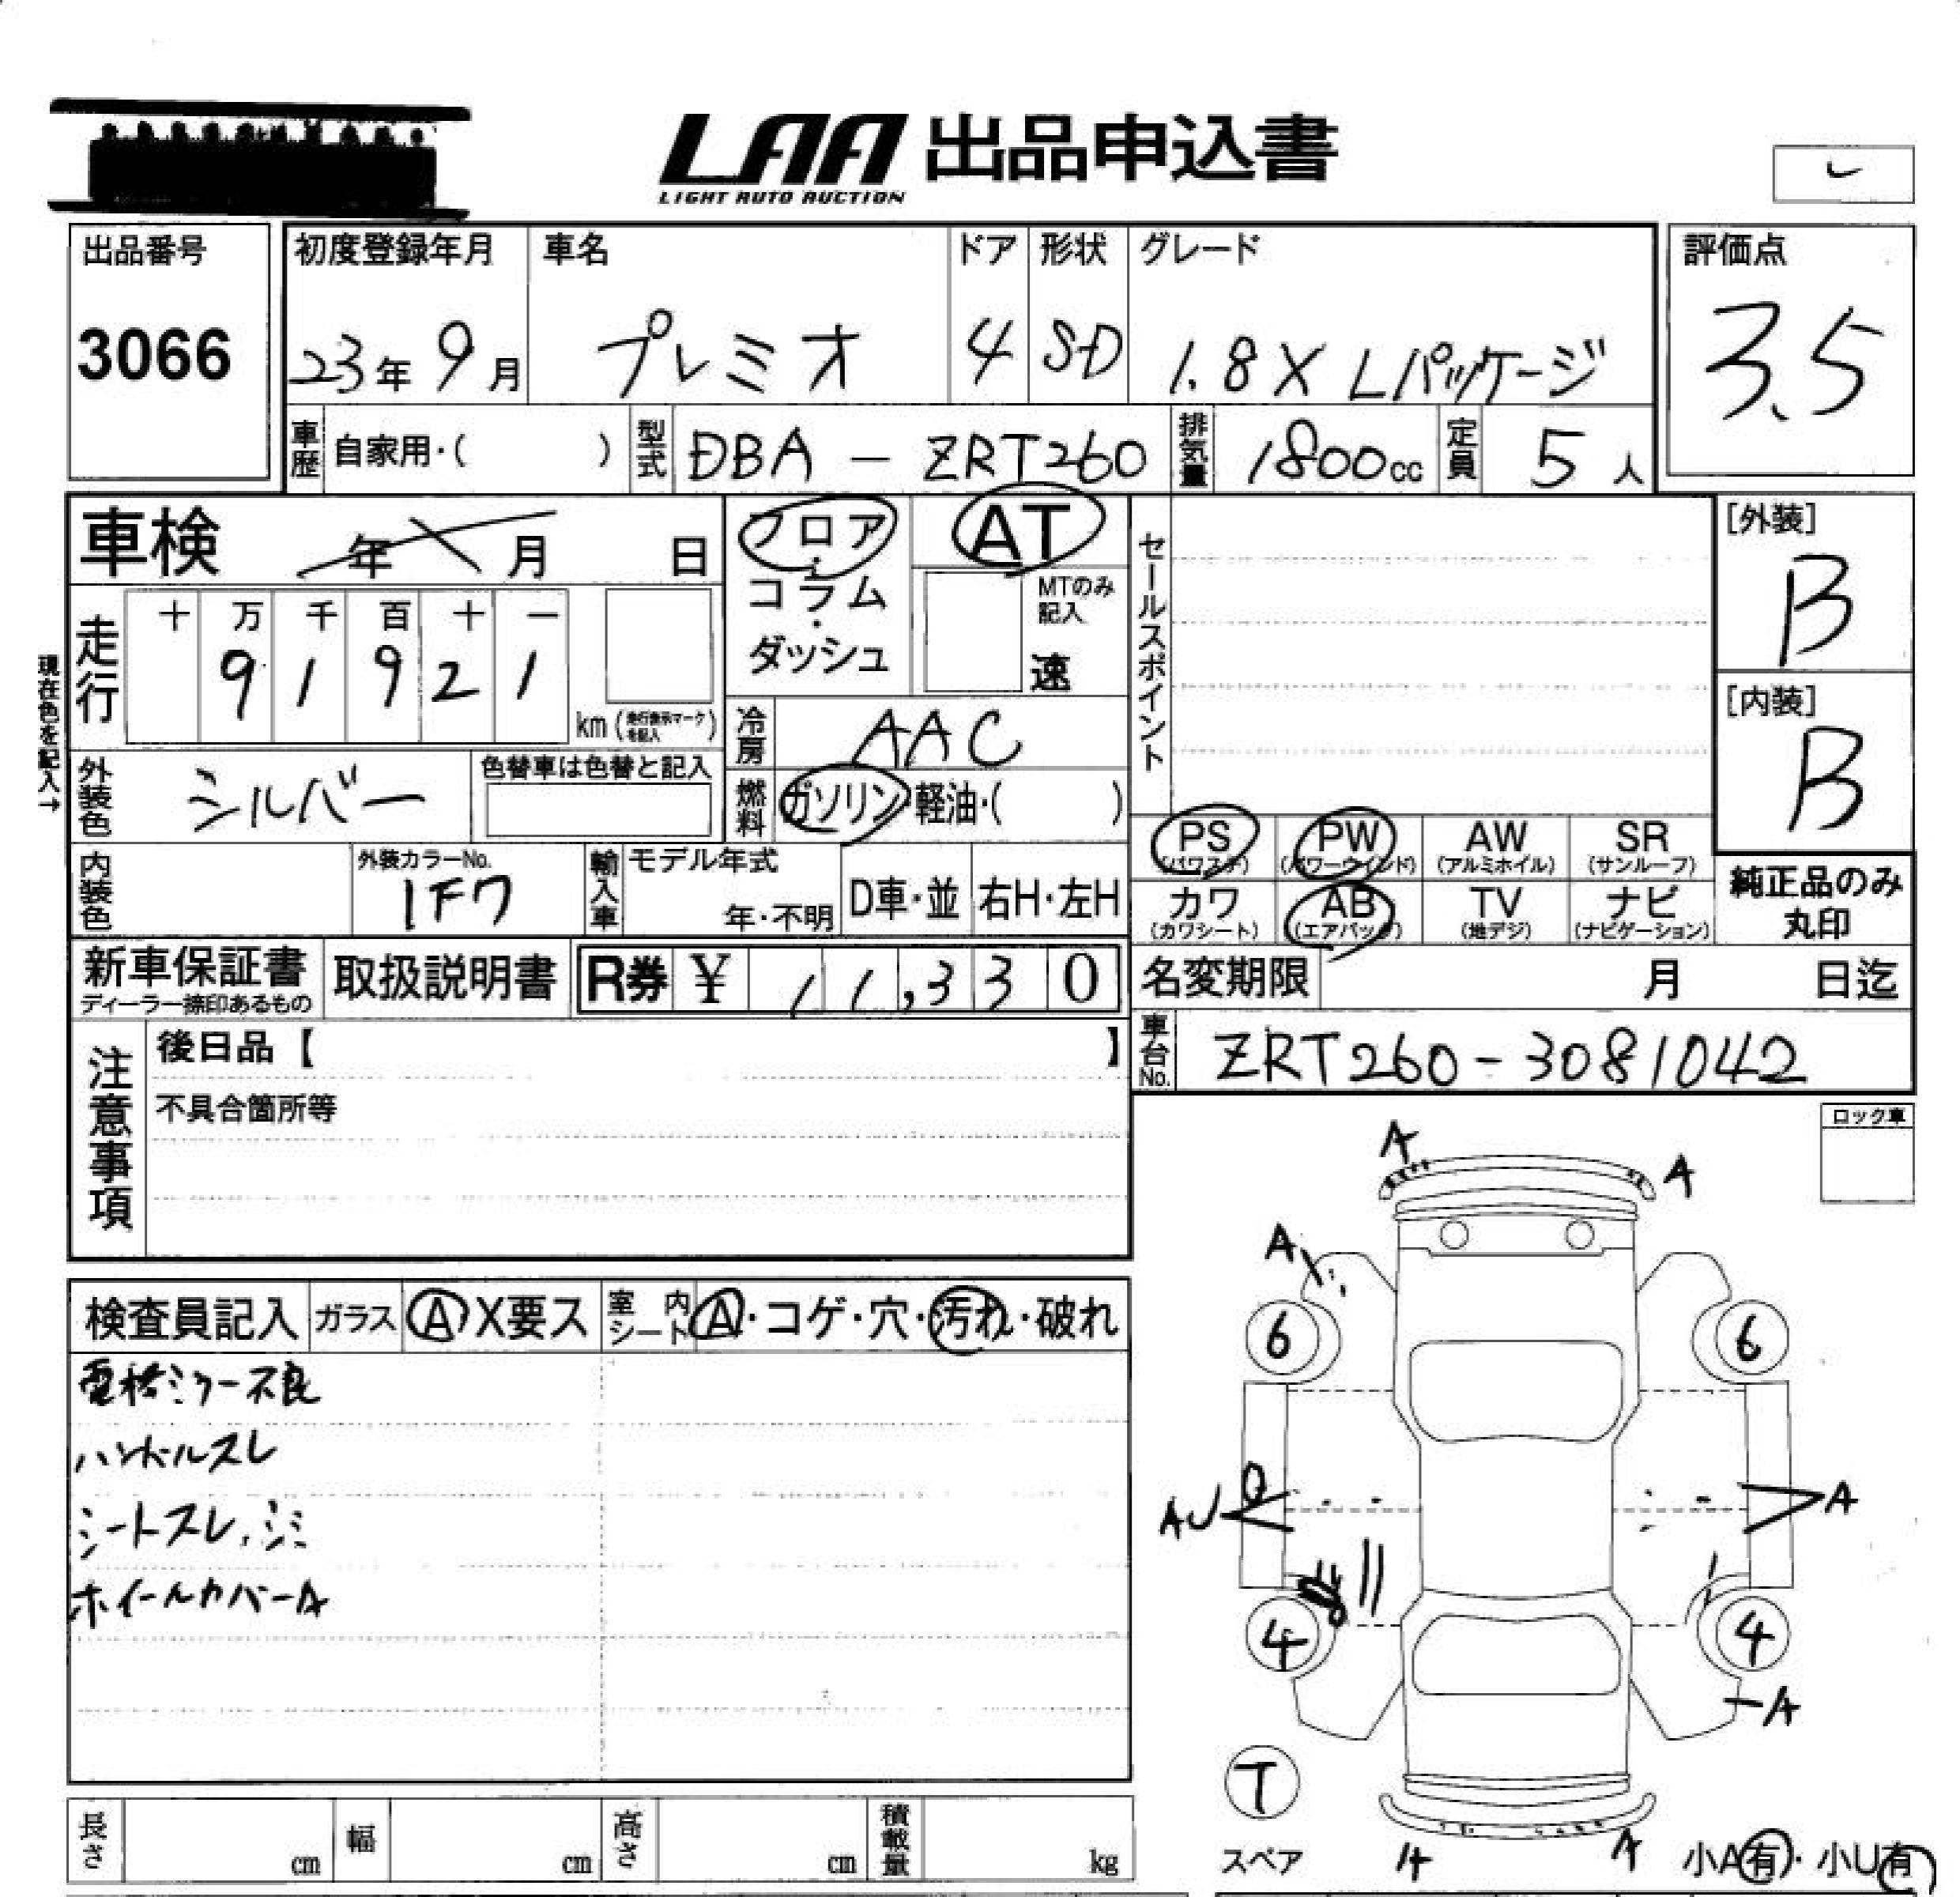 LAA 出品申込書
LIGHT AUTO AUCTION
出品番号
3066
初度登録年月
23年 9月
車名
プレミオ
ドア
4
形状
SD
グレード
1.8X Lパッケージ
評価点
3.5
車歴 自家用・( )
型式 DBA - ZRT260
排気量 1800cc
定員 5人
車検 年 月 日
フロア・コラム・ダッシュ
AT
MTのみ記入
速
セールスポイント
[外装]
B
[内装]
B
現在色を記入→
走行
十 万 千 百 十 一
9 1 9 2 1
km (走行表示マークを記入)
冷房 AAC
外装色 シルバー
色替車は色替と記入
燃料 ガソリン・軽油・( )
PS (パワステ)
PW (パワーウインド)
AW (アルミホイル)
SR (サンルーフ)
カワ (カワシート)
AB (エアバック)
TV (地デジ)
ナビ (ナビゲーション)
純正品のみ丸印
内装色
外装カラーNo.
1F7
輸入車 モデル年式
年・不明
D車・並
右H・左H
新車保証書
ディーラー捺印あるもの
取扱説明書
R券 ¥ 11,330
名変期限 月 日迄
車台No. ZRT260-3081042
注意事項
後日品【 】
不具合箇所等
ロック車
検査員記入
ガラス A X要ス
室内シート A・コゲ・穴・汚れ・破れ
電格ミラー不良
ハンドルスレ
シートスレ、シミ
ホイールカバーA
A
A
A
6
6
AU
A
4
4
A
T
スペア
A
A
小A有・小U有
長さ cm
幅 cm
高さ cm
積載量 kg